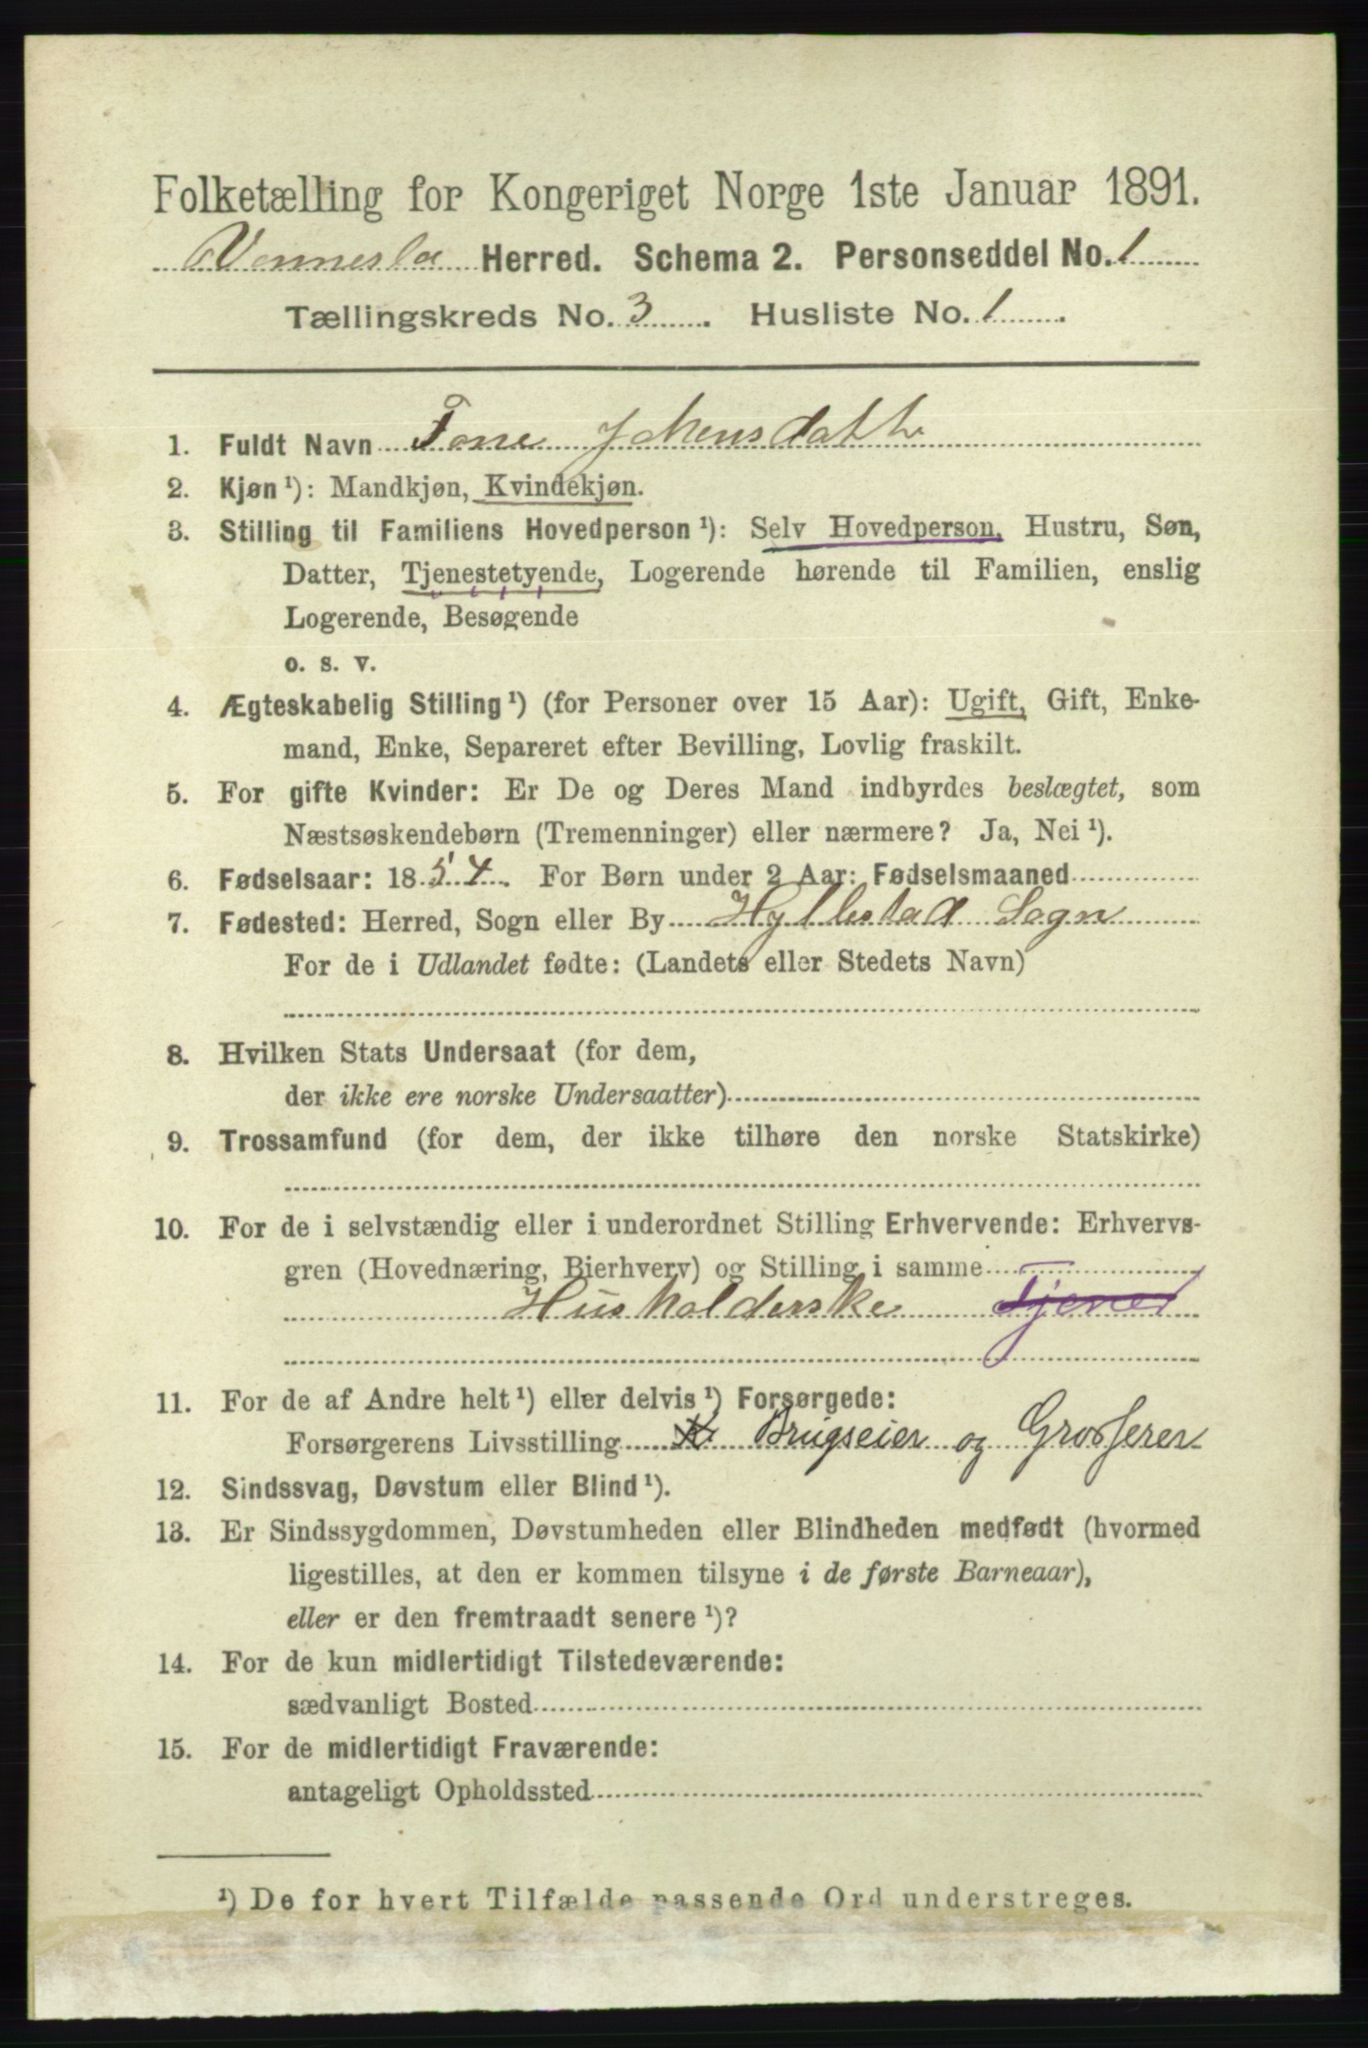 Folketælling for Kongeriget Norge 1ste Januar 1891.
Vennesla Herred. Schema 2. Personseddel No. 1
Tællingskreds No. 3. Husliste No. 1.
1. Fuldt Navn Tone Jchensdatte
2. Kjøn¹): Mandkjøn, Kvindekjøn.
3. Stilling til Familiens Hovedperson¹): Selv Hovedperson, Hustru, Søn,
Datter, Tjenestetyende, Logerende hørende til Familien, enslig
Logerende, Besøgende
o. s. v.
4. Ægteskabelig Stilling¹) (for Personer over 15 Aar): Ugift, Gift, Enke-
mand, Enke, Separeret efter Bevilling, Lovlig fraskilt.
5. For gifte Kvinder: Er De og Deres Mand indbyrdes beslægtet, som
Næstsøskendebørn (Tremenninger) eller nærmere? Ja, Nei¹).
6. Fødselsaar: 1854. For Børn under 2 Aar: Fødselsmaaned
7. Fødested: Herred, Sogn eller By Hyllestad Sogn
For de i Udlandet fødte: (Landets eller Stedets Navn)
8. Hvilken Stats Undersaat (for dem,
der ikke ere norske Undersaatter)
9. Trossamfund (for dem, der ikke tilhøre den norske Statskirke)
10. For de i selvstændig eller i underordnet Stilling Erhvervende: Erhvervs-
gren (Hovednæring, Bierhverv) og Stilling i samme
Husholderske Tjener
11. For de af Andre helt¹) eller delvis¹) Forsørgede:
Forsørgerens Livsstilling Brugseier og Grosserer
12. Sindssvag, Døvstum eller Blind¹).
13. Er Sindssygdommen, Døvstumheden eller Blindheden medfødt (hvormed
ligestilles, at den er kommen tilsyne i de første Barneaar),
eller er den fremtraadt senere¹)?
14. For de kun midlertidigt Tilstedeværende:
sædvanligt Bosted
15. For de midlertidigt Fraværende:
antageligt Opholdssted
¹) De for hvert Tilfælde passende Ord understreges.